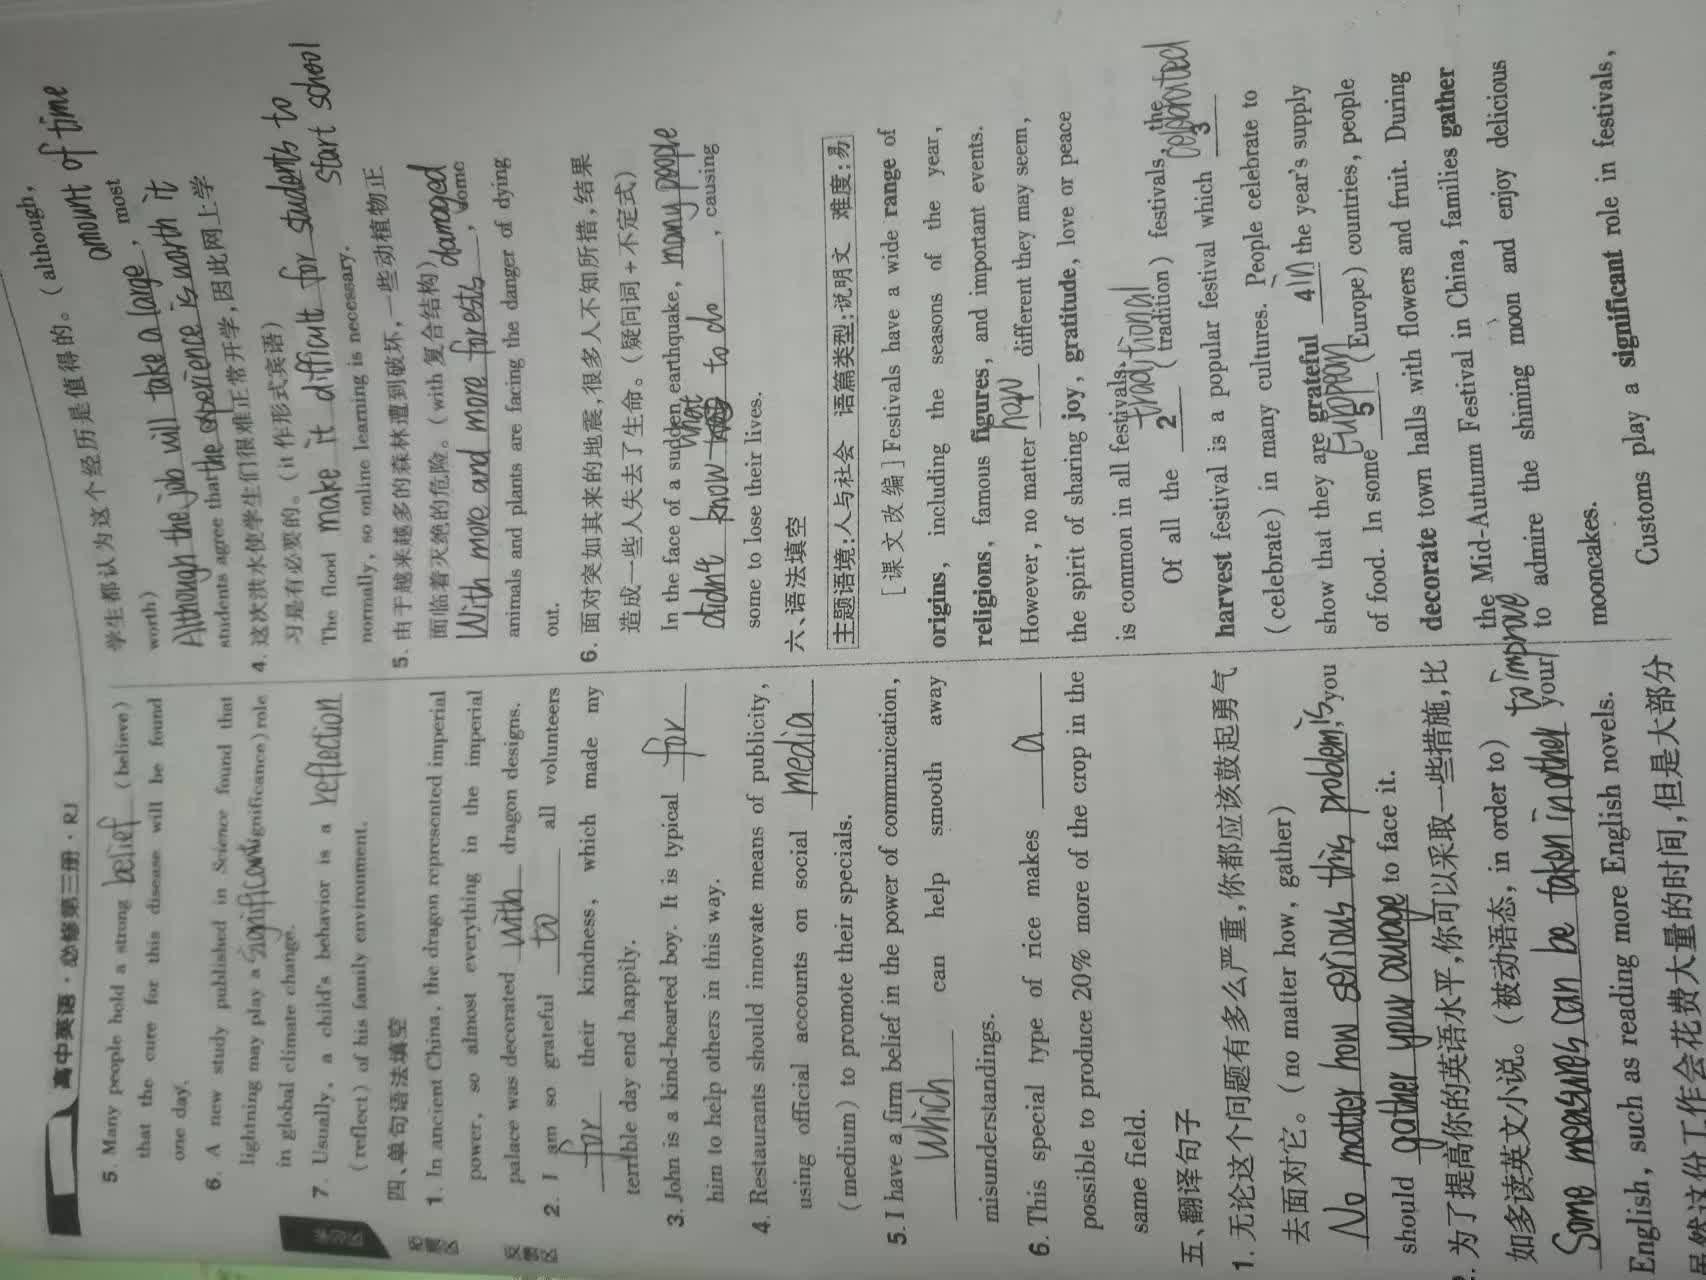 高中英语·必修第三册·RJ
5. Many people hold a strong belief (believe)
that the cure for this disease will be found
one day.
6. A new study published in Science found that
lightning may play a significant (significance) role
in global climate change.
7. Usually, a child's behavior is a reflection
(reflect) of his family environment.
四、单句语法填空
1. In ancient China, the dragon represented imperial
power, so almost everything in the imperial
palace was decorated with dragon designs.
2. I am so grateful to all volunteers
for their kindness, which made my
terrible day end happily.
3. John is a kind-hearted boy. It is typical for
him to help others in this way.
4. Restaurants should innovate means of publicity,
using official accounts on social media
(medium) to promote their specials.
5. I have a firm belief in the power of communication,
which can help smooth away
misunderstandings.
6. This special type of rice makes a
possible to produce 20% more of the crop in the
same field.
五、翻译句子
1. 无论这个问题有多么严重,你都应该鼓起勇气
去面对它。(no matter how, gather)
No matter how serious this problem is, you
should gather your courage to face it.
2. 为了提高你的英语水平,你可以采取一些措施,比
如多读英文小说。(被动语态, in order to)
Some measures can be taken in other to improve your
English, such as reading more English novels.
虽然这份工作会花费大量的时间,但是大部分
学生都认为这个经历是值得的。(although,
worth)
Although the job will take a large amount of time, most
students agree that the experience is worth it
4. 这次洪水使学生们很难正常开学,因此网上学
习是有必要的。(it 作形式宾语)
The flood make it difficult for students to start school
normally, so online learning is necessary.
5. 由于越来越多的森林遭到破坏,一些动植物正
面临着灭绝的危险。(with 复合结构)
With more and more forests damaged, some
animals and plants are facing the danger of dying
out.
6. 面对突如其来的地震,很多人不知所措,结果
造成一些人失去了生命。(疑问词+不定式)
In the face of a sudden earthquake, many people
didn't know what to do, causing
some to lose their lives.
六、语法填空
主题语境:人与社会 语篇类型:说明文 难度:易
[课文改编] Festivals have a wide range of
origins, including the seasons of the year,
religions, famous figures, and important events.
However, no matter how different they may seem,
the spirit of sharing joy, gratitude, love or peace
is common in all festivals.
Of all the 2 traditional (tradition) festivals, the
harvest festival is a popular festival which 3 celebrated
(celebrate) in many cultures. People celebrate to
show that they are grateful 4 in the year's supply
of food. In some 5 (Europe) countries, people
decorate town halls with flowers and fruit. During
the Mid-Autumn Festival in China, families gather
to admire the shining moon and enjoy delicious
mooncakes.
Customs play a significant role in festivals,